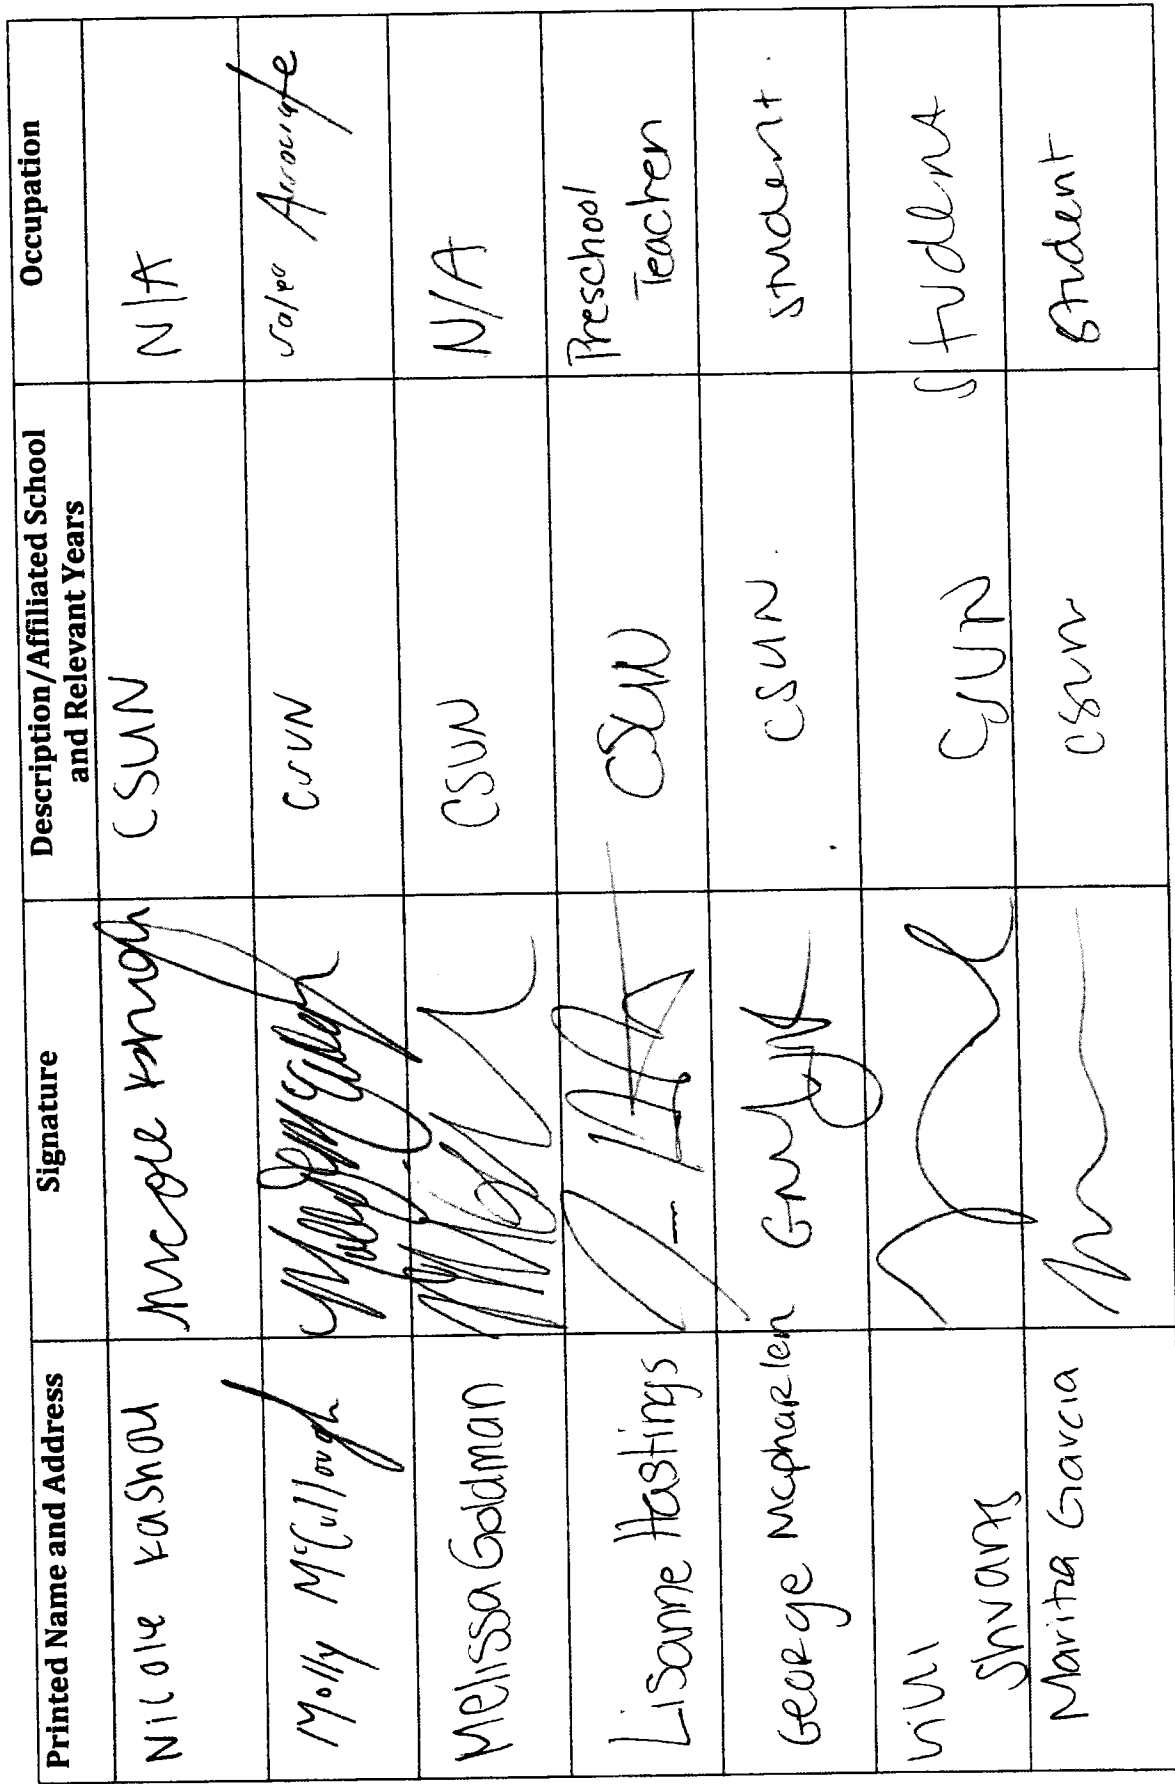 Printed Name and Address Signature Description/Affiliated School and Relevant Years Occupation
Nicole Kashou Nicole Kashou CSUN N/A
Molly McCullough CSUN Sales Associate
Melissa Goldman CSUN N/A
Lisanne Hastings CSUN Preschool Teacher
George Mcpharlen CSUN. student.
Shvarts CSUN Student
Maritza Garcia CSUN Student